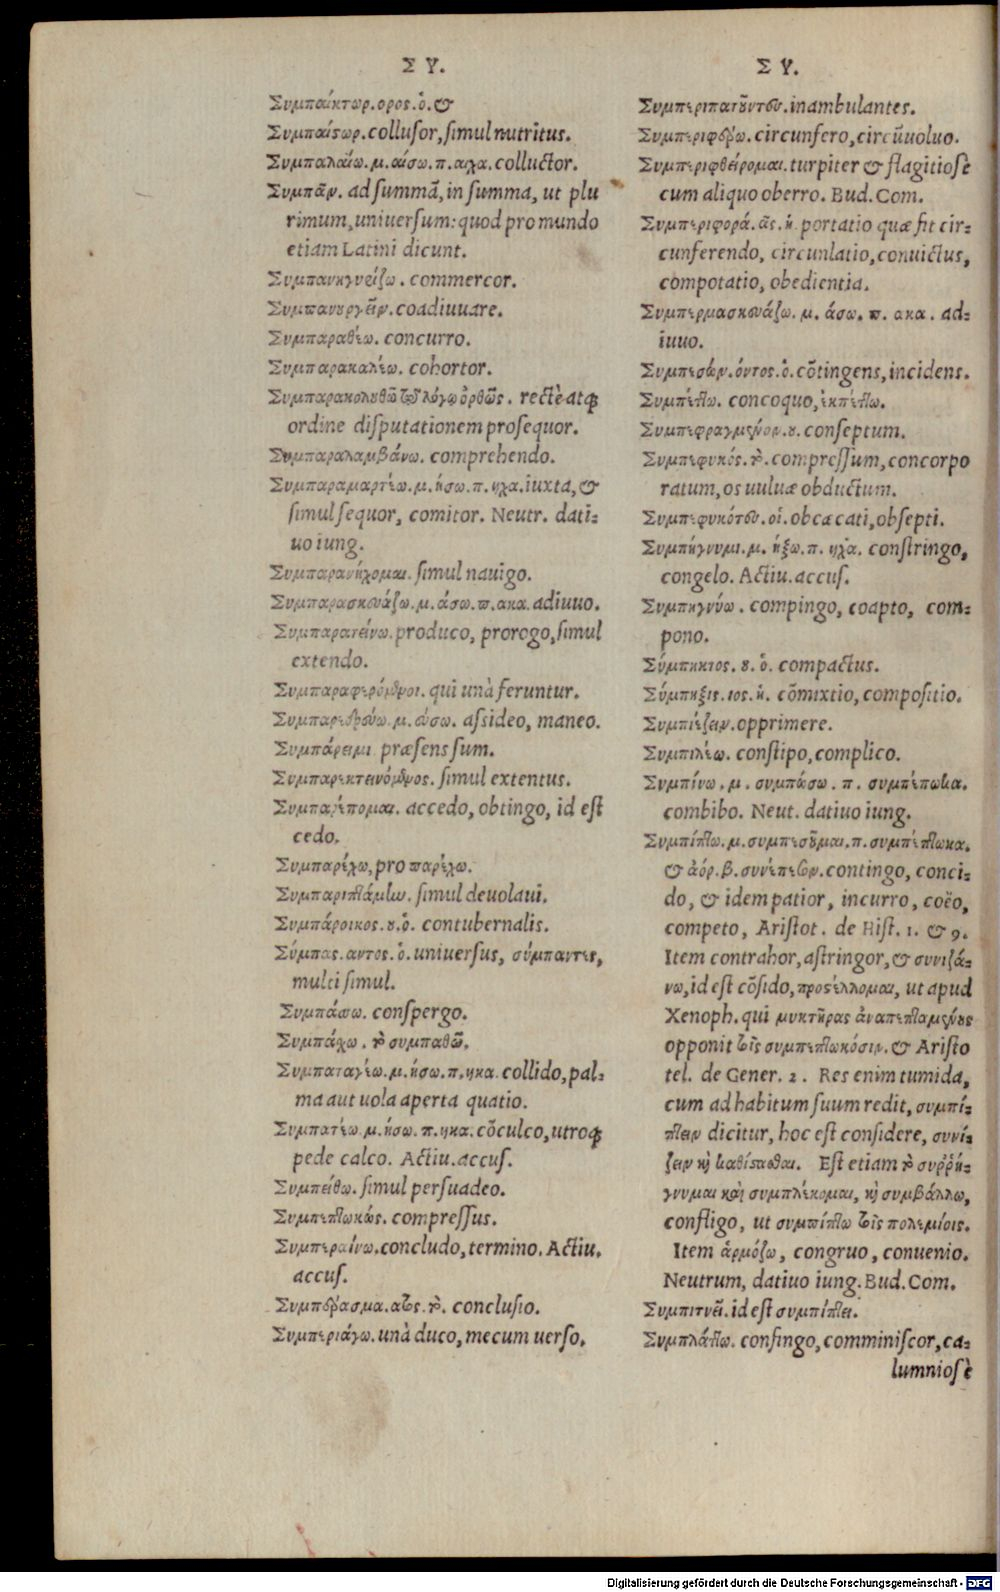 Σ Υ.
Συμπαίκτωρ. ορος. ὁ. &
Συμπαίστωρ. collusor, simul nutritus.
Συμπαλαίω. μ. αίσω. π. αικα. colluctor.
Συμπᾶν. ad summā, in summa, ut plu
rimum, uniuersum: quod pro mundo
etiam Latini dicunt.
Συμπανηγυρίζω. commercor.
Συμπανουργεῖν. coadiuuare.
Συμπαραθέω. concurro.
Συμπαρακαλέω. cohortor.
Συμπαρακολουθῶ τῷ λόγῳ ὀρθῶς. rectè atq;
ordine disputationem prosequor.
Συμπαραλαμβάνω. comprehendo.
Συμπαραμαρτέω. μ. ήσω. π. ηκα. iuxta, &
simul sequor, comitor. Neutr. dati-
uo iung.
Συμπαρανήχομαι. simul nauigo.
Συμπαρασκευάζω. μ. άσω. π. ακα. adiuuo.
Συμπαρατείνω. produco, prorogo, simul
extendo.
Συμπαραφερόμενοι. qui unà feruntur.
Συμπαρεδρεύω. μ. εύσω. assideo, maneo.
Συμπάρειμι præsens sum.
Συμπαρεκτεινόμενος. simul extentus.
Συμπαρέπομαι. accedo, obtingo, id est
cedo.
Συμπαρέχω, pro παρέχω.
Συμπαριπτάμην. simul deuolaui.
Συμπάροικος. ου. ὁ. contubernalis.
Σύμπας. αντος. ὁ. uniuersus, σύμπαντες,
multi simul.
Συμπάσσω. conspergo.
Συμπάσχω. τὸ συμπαθῶ.
Συμπαταγέω. μ. ήσω. π. ηκα. collido, pal-
ma aut uola aperta quatio.
Συμπατέω. μ. ήσω. π. ηκα. cōculco, utroq;
pede calco. Actiu. accus.
Συμπείθω. simul persuadeo.
Συμπεπτωκώς. compressus.
Συμπεραίνω. concludo, termino. Actiu.
accus.
Συμπέρασμα. ατος. τὸ. conclusio.
Συμπεριάγω. unà duco, mecum uerso.
Σ Υ.
Συμπεριπατοῦντες. inambulantes.
Συμπεριφέρω. circunfero, circūuoluo.
Συμπεριφθείρομαι. turpiter & flagitiose
cum aliquo oberro. Bud. Com.
Συμπεριφορά. ᾶς. ἡ. portatio quæ fit cir-
cunferendo, circunlatio, conuictus,
compotatio, obedientia.
Συμπερμασκευάζω. μ. άσω. π. ακα. ad-
iuuo.
Συμπεσών. όντος. ὁ. cōtingens, incidens.
Συμπέπτω. concoquo, ἐκπέπτω.
Συμπεφραγμένον. ου. conseptum.
Συμπεφυκός. τὸ. compressum, concorpo
ratum, os uuluæ obductum.
Συμπεφυκότες. οἱ. obcæcati, obsepti.
Συμπήγνυμι. μ. ήξω. π. ηχα. constringo,
congelo. Actiu. accus.
Συμπηγνύω. compingo, coapto, com-
pono.
Σύμπηκτος. ου. ὁ. compactus.
Σύμπηξις. ιος. ἡ. cōmixtio, compositio.
Συμπιέζειν. opprimere.
Συμπιλέω. constipo, complico.
Συμπίνω. μ. συμπάσω. π. συμπέπωκα.
combibo. Neut. datiuo iung.
Συμπίπτω. μ. συμπεσοῦμαι. π. συμπέπτωκα.
& ἀόρ. β. συνέπεσον. contingo, conci-
do, & idem patior, incurro, coëo,
competo, Aristot. de Hist. 1. & 9.
Item contrahor, astringor, & συνιζά-
νω, id est cōsido, προστέλλομαι, ut apud
Xenoph. qui μυκτῆρας ἀναπεπταμένους
opponit τοῖς συμπεπτωκόσιν. & Aristo
tel. de Gener. 2. Res enim tumida,
cum ad habitum suum redit, συμπί-
πτειν dicitur, hoc est considere, συνί-
ζειν καὶ καθίστασθαι. Est etiam τὸ συῤῥή-
γνυμαι καὶ συμπλέκομαι, καὶ συμβάλλω,
confligo, ut συμπίπτω τοῖς πολεμίοις.
Item ἁρμόζω, congruo, conuenio.
Neutrum, datiuo iung. Bud. Com.
Συμπιτνεῖ. id est συμπίπτει.
Συμπλάττω. confingo, comminiscor, ca-
lumniosè
Digitalisierung gefördert durch die Deutsche Forschungsgemeinschaft - DFG